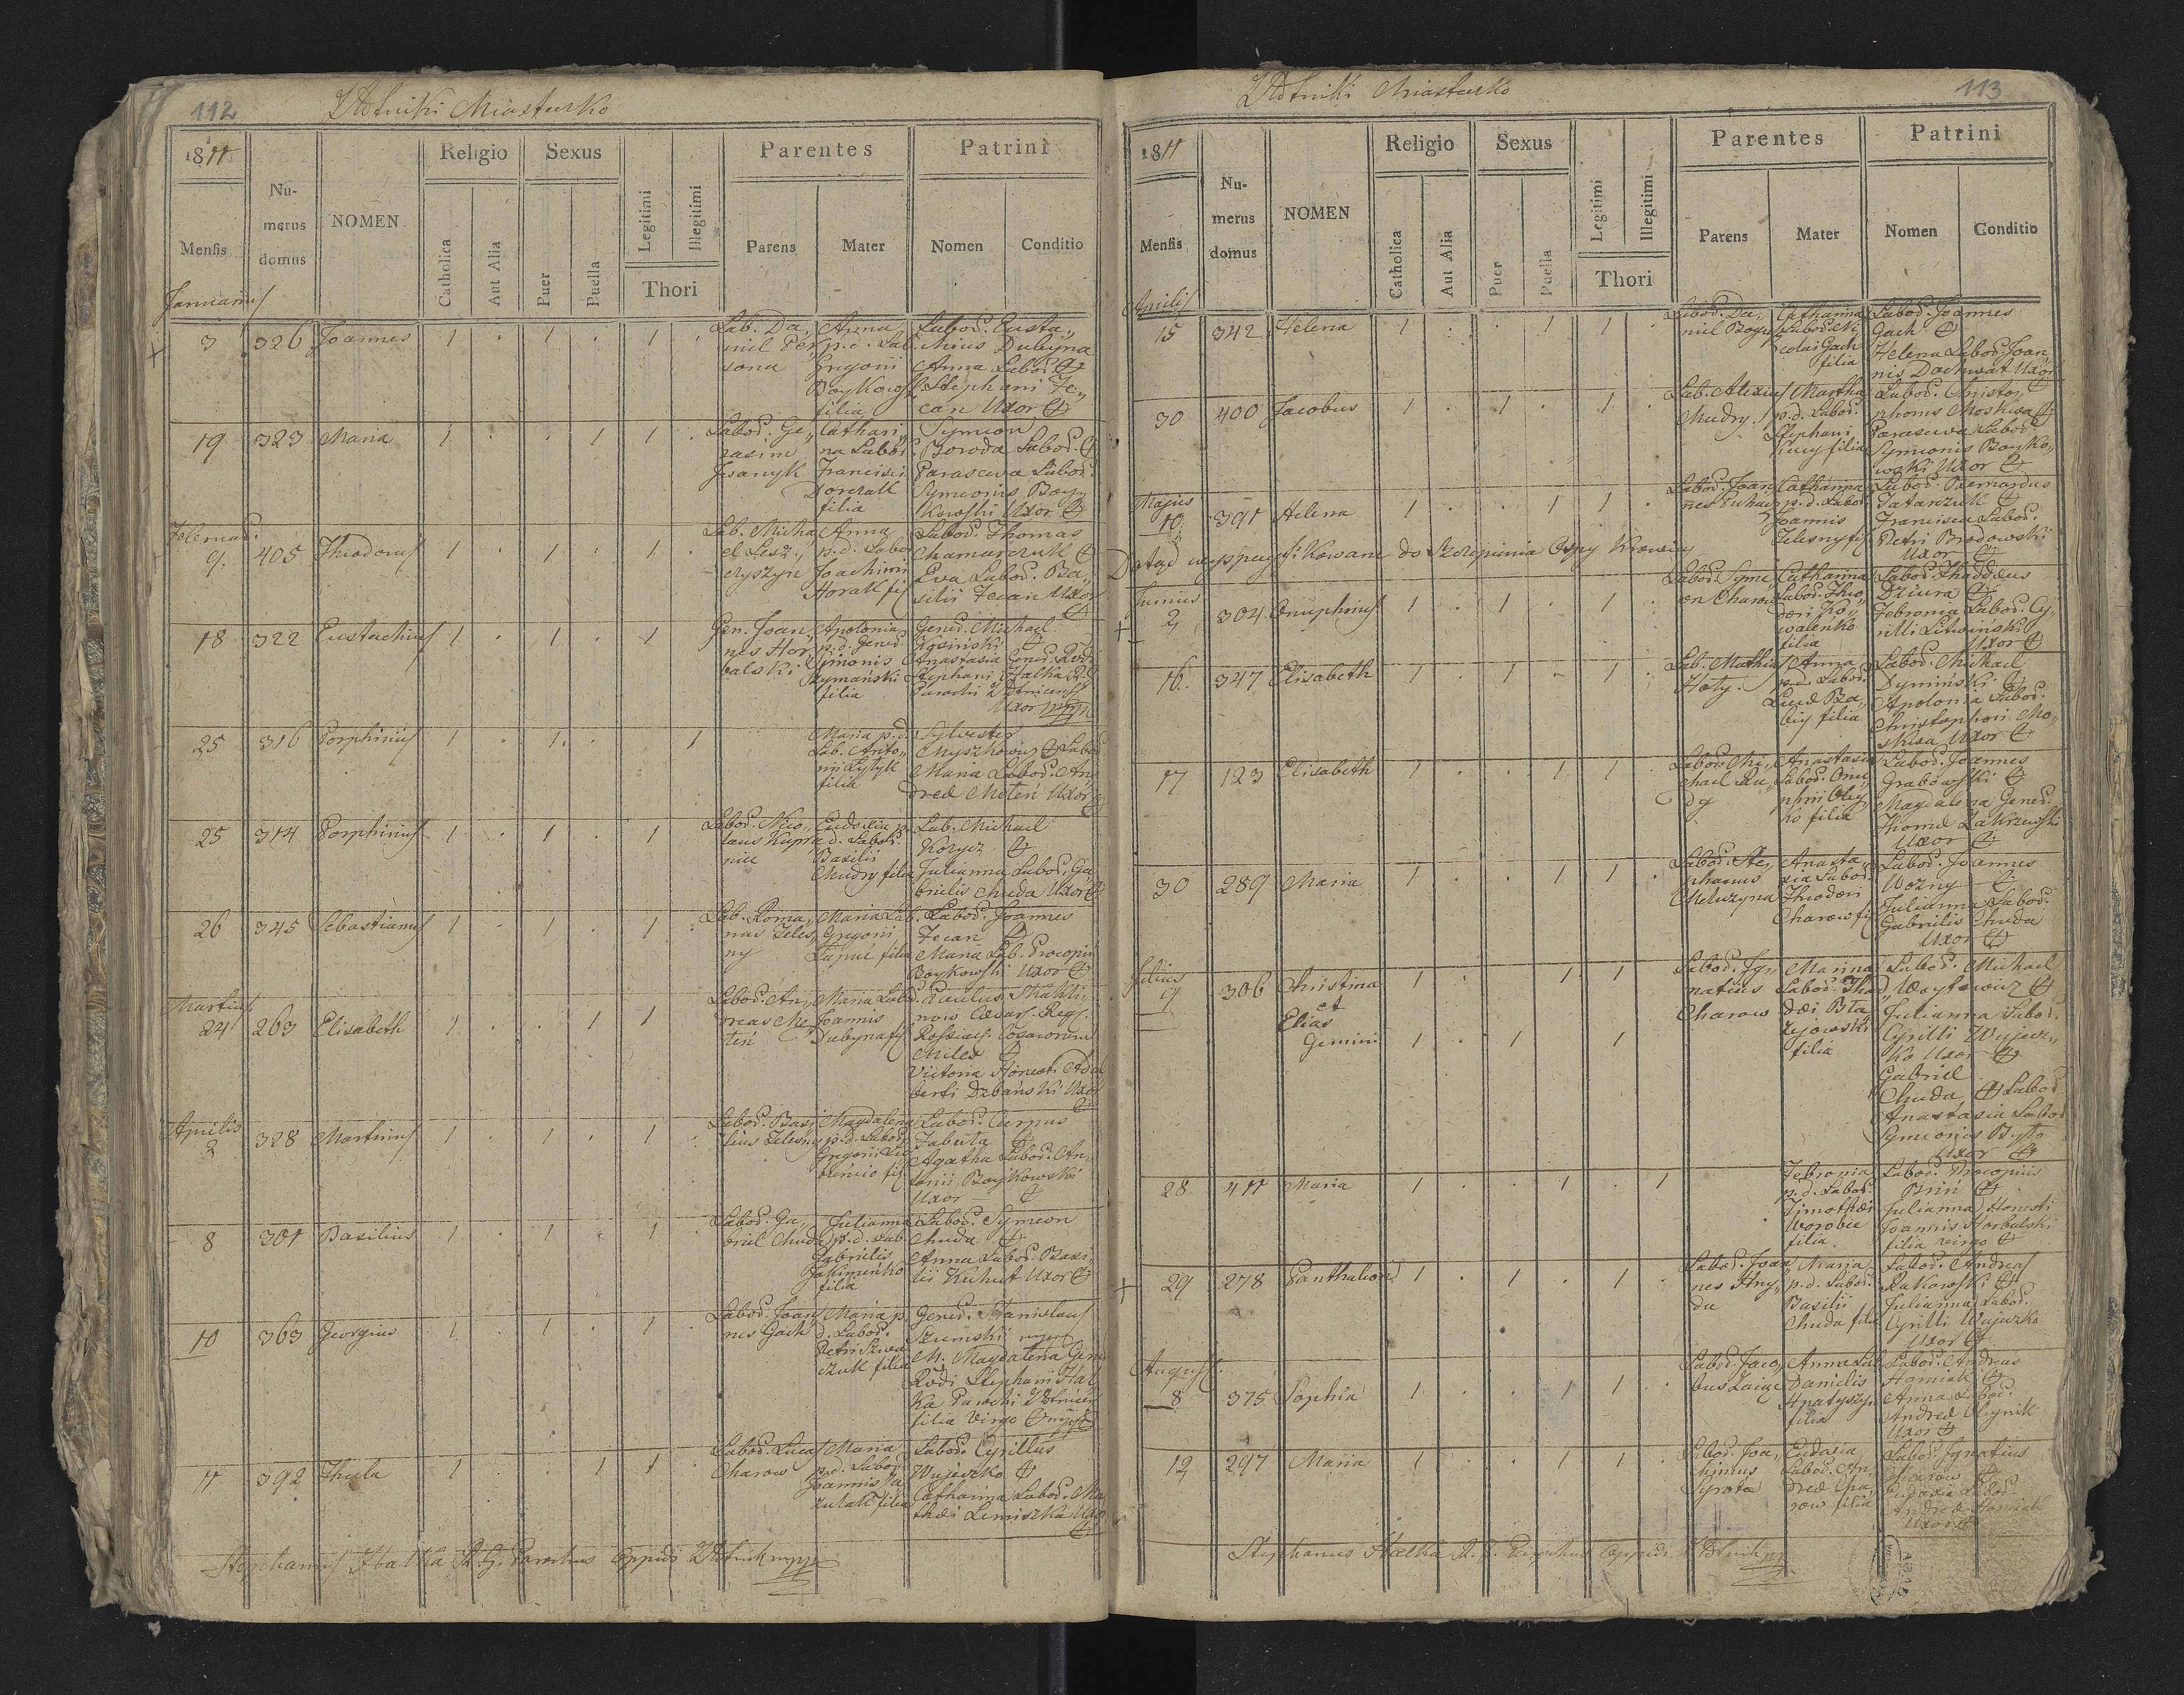 112
Złotniki Miasteczko
1811
Mensis
Numerus domus
NOMEN
Religio
Catholica
Aut Alia
Sexus
Puer
Puella
Legitimi
Illegitimi
Thori
Parentes
Parens
Mater
Patrini
Nomen
Conditio
Januarius
3 326 Joannes 1 . 1 . 1 .
Lab. Da„
niel
sona
Anna
p. d. Lab.
Gregorii
Boykowski
filia
Labor. Eusta„
chius Dubyna
Anna Labor.
Stephani Fe„
can Uxor
19 323 Maria 1 . . 1 1 .
Labor. Ge„
rasim
Iwanyk
Cathari„
na Labor.
Francisci
Dorczak
filia
Symeon
Boroda Labor.
Parasceva Labor.
Symeonis Boy„
kowski Uxor
Februar.
9. 405 Theodorus 1 . 1 . 1 .
Lab. Micha
el Lesz„
czyszyn
Anna
p. d. Labor
Joachimi
Horak fil
Labor. Thomas
Chamarczuk
Eva Labor. Ba„
silii Fecan Uxor
18 322 Eustachius 1 . 1 . 1
Gen. Joan„
nes Hor„
balski
Apolonia
p. d. Gener.
Simonis
Szymański
filia
Gener. Michael
Kosinski
Anastasia Gener. Rdi
Stephani Halka R. G.
Parochi Złotnicensis
Uxor mpp
25 316 Porphirius 1 . 1 . 1
Maria p. d.
Lab. Anto„
nii Łytyk
filia
Sylvester
Myszkowicz Labor
Maria Labor. An
dreæ Meteń Uxor
25 314 Porphirius 1 . 1 . 1
Labor. Nico„
laus
Eudoxia p.
d. Labor.
Basilii
Chudry filia
Lab. Michael
Korycz
Julianna Labor. Ga
brielis Chuda Uxor
26 345 Sebastianus 1 . 1 . 1 .
Lab. Roma„
nus Zeles„
ny
Maria Lab.
Gregorii
filia
Labor. Joannes
Fecan
Maria Lab. Procopii
Boykowski Uxor
Martius
24 263 Elisabeth 1 . . 1 1
Labor. An„
dreas Me„
teń
Maria Labor.
Joannis
Dubyna fil
Paulus
now Cæsar. Reg.
Rossiacs. Cosacorum
Miles
Victoria Honesti Adal
berti Dzbański Uxor
Aprilis
2 328 Martinus 1 . 1 . 1 .
Labor. Basi
lius Zelesny
Magdalena
p. d. Labor.
Gregorii
fil
Labor. Carpus
Zabuta
Agatha Labor. An„
tonii Boykowski
Uxor
8 301 Basilius 1 . 1 . 1 .
Labor. Ga„
briel Chuda
Julianna
p. d. Lab
Gabrielis
Jakimienko
filia
Labor. Symeon
Chuda
Anna Labor. Basi
lii Kuhut Uxor
10 363 Georgius 1 . 1 . 1 .
Labor. Joan
nes Gach
Maria p.
d. Labor.
Petri Szwa
czuk filia
Gener. Stanislaus
Szumski mpp
M. Magdalena Gene
Rvdi Stephani Hal
ka Parochi Złotnicen
filia Virgo mpp
11 392 Thecla 1 . . 1 1 .
Labor. Lucas
Charow
Maria
p. d. Labor
Joannis
filia
Labor. Cyrillus
Wujeczko
Catharina Labor. Ma
thæi Lemiszka Uxor
Stephanus Halka R. G. Parochus Oppidi Złotnik mpp
113
Złotniki Miasteczko
1811
Mensis
Numerus domus
NOMEN
Religio
Catholica
Aut Alia
Sexus
Puer
Puella
Legitimi
Illegitimi
Thori
Parentes
Parens
Mater
Patrini
Nomen
Conditio
Aprilis
15 342 Helena 1 . . 1 1 .
Labor. Da„
niel
Catharina
Labor. Ni
colai Gach
filia
Labor. Joannes
Gach
Helena Labor. Joan„
nis Uxor
30 400 Jacobus 1 . 1 . 1 .
Lab. Alexius
Mudry
Martha
p. d. Labor.
Stephani
filia
Labor. Christo„
phorus Moskwa
Parasceva Labor.
Symeonis Boyko„
wski Uxor
Majus
10 391 Helena 1 . . 1 1 .
Labor. Joan
nes
Catharina
p. d. Labor
Joannis
Zelesny fil
Labor. Bernardus
Tatarczuk
Francisca Labor.
Petri Brodowski
Uxor
Dotąd do Szczepienia Ospy Krowiey
Junius
2 304 Onuphrius 1 . 1 . 1 .
Labor. Syme
on Charow
Catharina
Labor. Theo„
dori Ko„
walenko
filia
Labor. Thaddæus
Dziura
Febronia Labor. Cy„
rilli Litwiński
Uxor
16. 347 Elisabeth 1 . 1 . 1 .
Lab. Mathias
Hoty.
Anna
p. d. Labor.
Lucæ Ba„
biy filia
Labor. Michael
Dymiński
Apolonia Labor.
Christophori Mo„
skwa Uxor
17 123 Elisabeth 1 . . 1 1 .
Labor. Mi„
chael Ru„
dy
Anastasia
Labor. Onu„
phrii Oley
ko filia
Labor. Joannes
Grabowski
Magdalena Gener.
Thomæ Zakrzewski
Uxor
30 289 Maria 1 . . 1 1 .
Labor. Ste„
phanus
Meluzyna
Anasta„
sia Labor.
Theodori
Charow fil
Labor. Joannes
Wozny
Julianna Labor.
Gabrielis Chuda
Uxor
Julius
9 306 Christina 1 . 1 1
et
Elias
Gemini 1 . 1 1
Labor. Ig„
natius
Charow
Marina
Labor. Thad
dæi Bła„
żejowski
filia
Labor. Michael
Woytowicz
Julianna Labor.
Cyrilli Wujecz„
ko Uxor
Gabriel
Chuda Labor.
Anastasia Labor
Symeonis
Uxor
28 411 Maria 1 . . 1 . 1
Febronia
p. d. Labor.
Timothæi
Worobec
filia
Labor. Procopius
Brin
Julianna Honesti
Joannis Horbalski
filia virgo
29 278 Panthaleon 1 . 1 . 1 .
Labor. Joan
nes Hny„
da
Maria
p. d. Labor.
Basilii
Chuda filia
Labor. Andreas
Rakowski
Julianna Labor.
Cyrilli Wujeczko
Uxor
August.
8 375 Sophia 1 . . 1 1 .
Labor. Jaco„
bus Zaiac
Anna Lab
Danielis
Hnatyszyn
filia
Labor. Andreas
Homiak
Anna Labor.
Andreæ Oleynik
Uxor
12 297 Maria 1 . . 1 1 .
Labor. Joa„
chimus
Syrota
Eudoxia
Labor. An„
dreæ Cha„
row filia
Labor. Ignatius
Charow
Eudoxia Labor.
Andreæ Homiak
Uxor
Stephanus Halka R. G. Parochus Oppidi Złotnik mpp